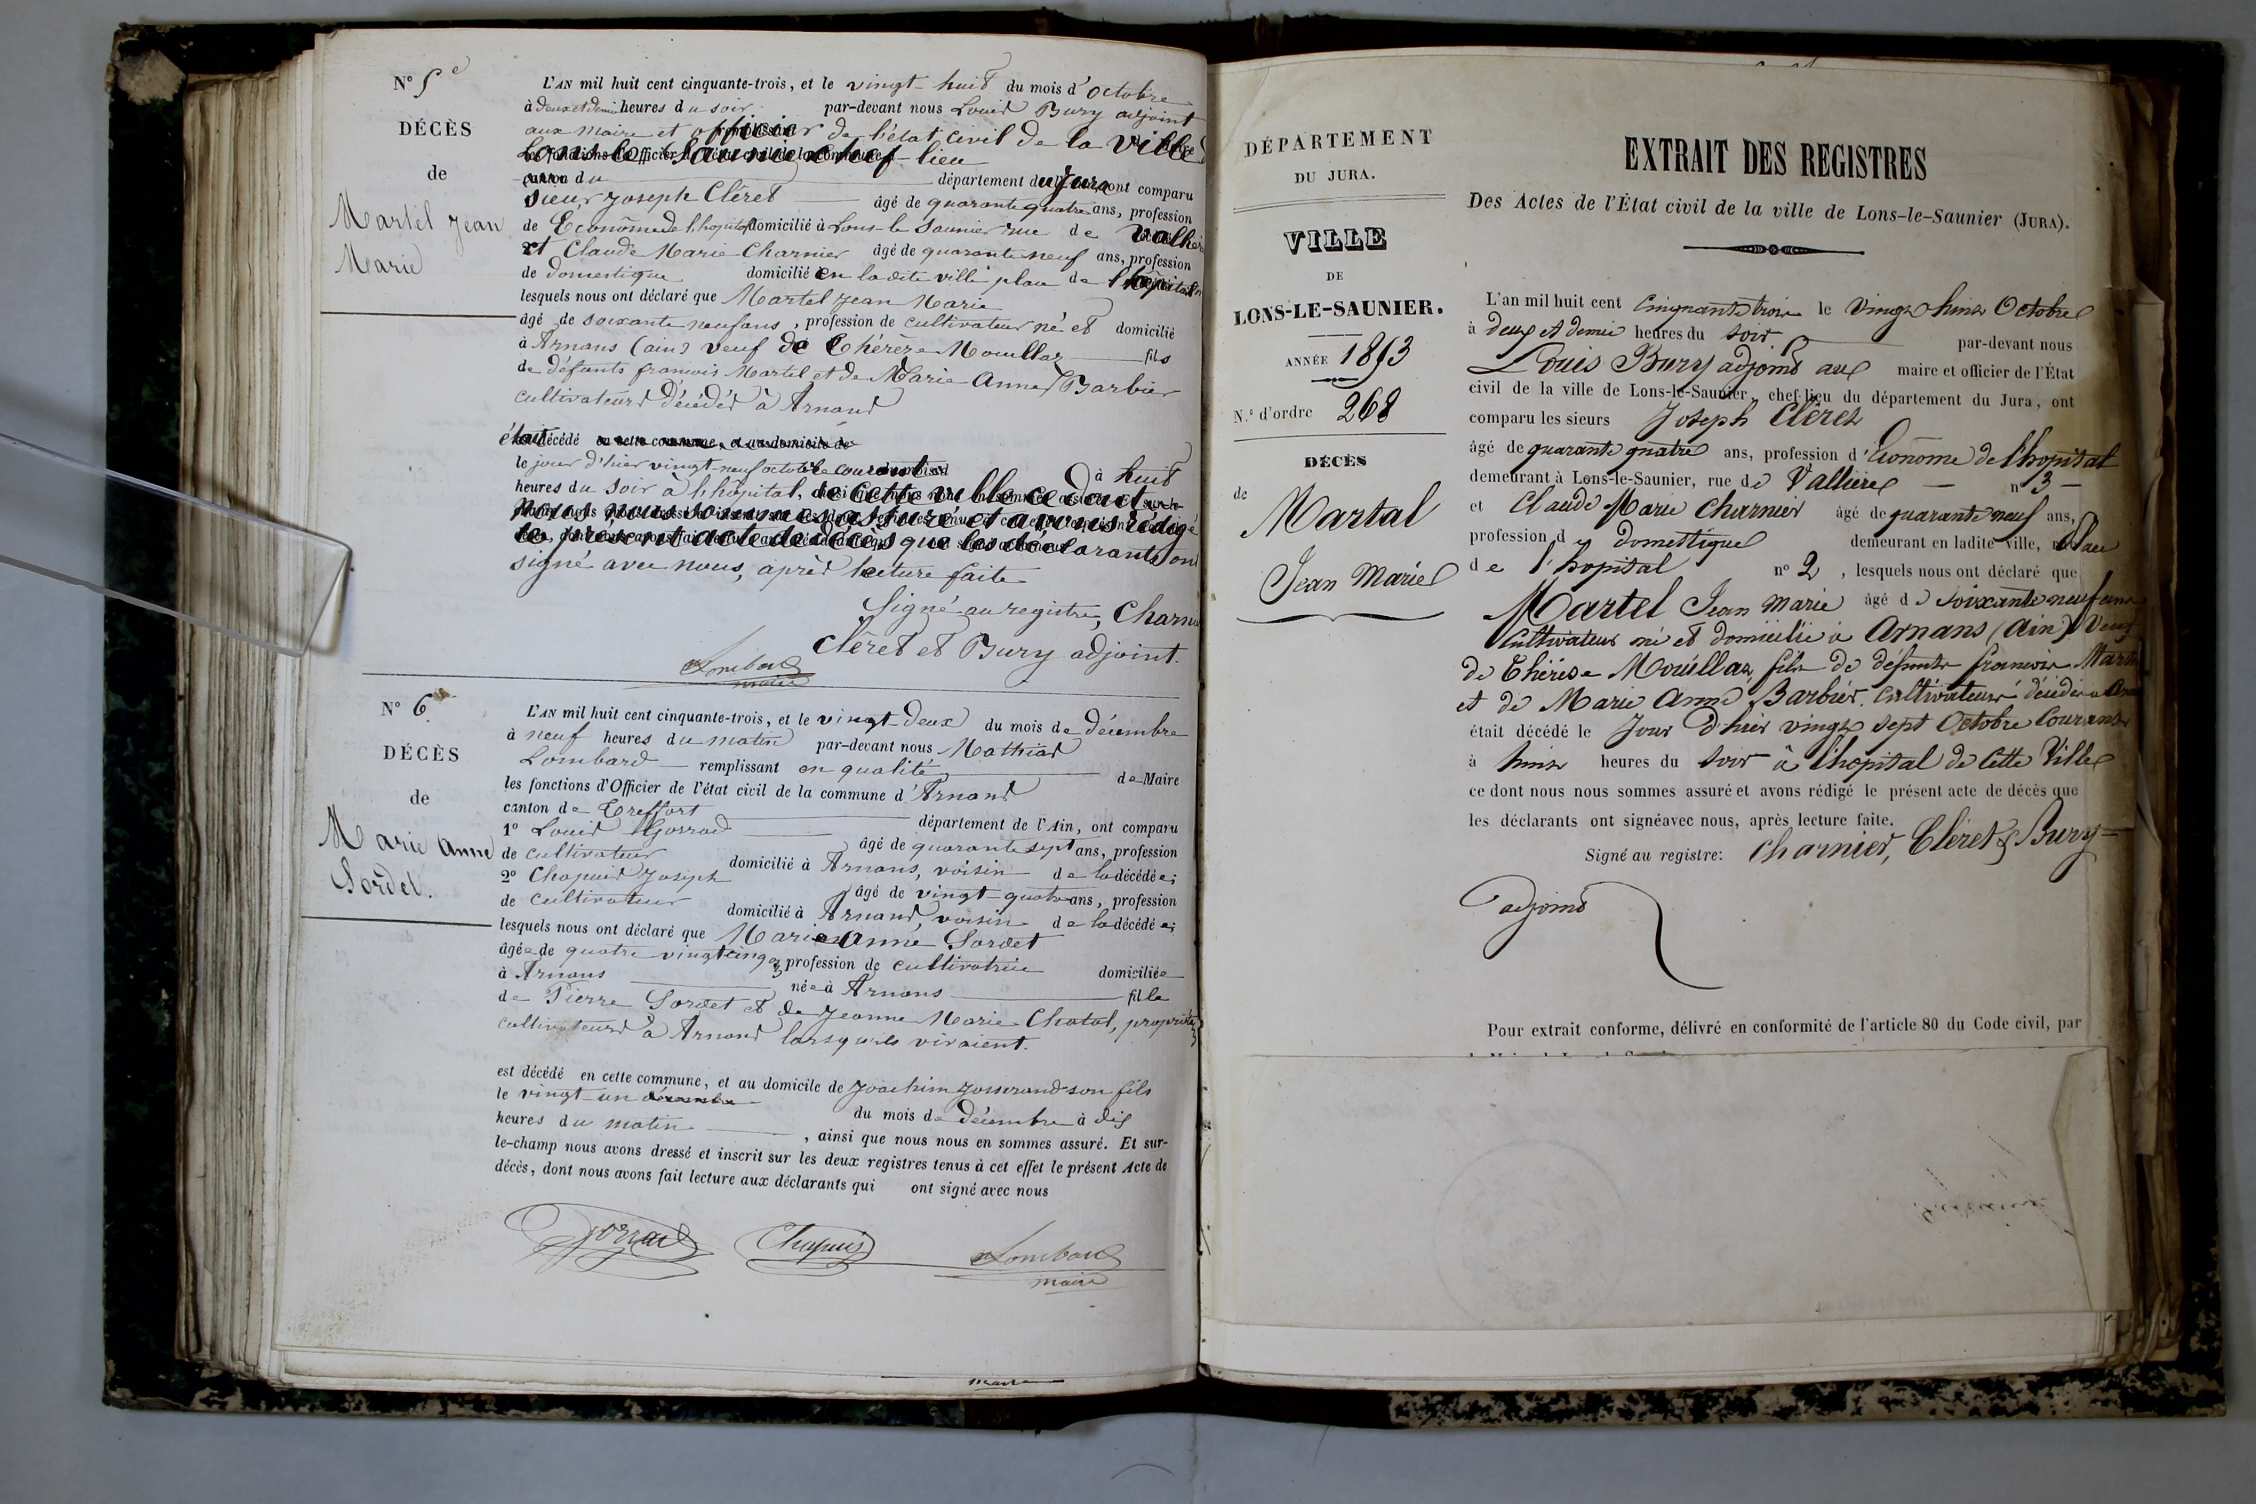 N° 5e
DÉCÈS
de
Martel Jean
Marie
L'AN mil huit cent cinquante-trois, et le vingt-huit du mois d'octobre
à deux et demi heures du soir par-devant nous Louis Bury adjoint
aux maire et officier de l'état civil de la ville de
Lons-le-Saunier chef-lieu
canton du département du Jura ont comparu
Sieurs Joseph Clèret âgé de quarante quatre ans, profession
de Econôme de l'hopital domicilié à Lons-le-Saunier rue de Vallière
et Claude Marie Charnier âgé de quarante neuf ans, profession
de domestique domicilié en ladite ville place de l'hôpital
lesquels nous ont déclaré que Martel Jean Marie
âgé de soixante neuf ans, profession de cultivateur né et domicilié
à Arnans (ain) veuf de Thérèze Mouillaz fils
de défunts francois Martel et de Marie-Anne Barbier
cultivateurs décédés à Arnans
était décédé en cette commune, et au domicile de
le jour d'hier vingt-neuf octobre courant à huit
heures du soir à l'hôpital, de cette ville ce dont
nous nous sommes assuré et avons rédigé
le présent acte de décès que les déclarants ont
signé avec nous, après lecture faite
Signé au registre, Charnier
Clèret et Bury adjoint.
Lombard
maire
N° 6
DÉCÈS
de
Marie Anne
Sordet.
L'AN mil huit cent cinquante-trois, et le vingt-deux du mois de décembre
à neuf heures du matin par-devant nous Mathias
Lombard remplissant en qualité de Maire
les fonctions d'Officier de l'état civil de la commune d'Arnans
canton de Treffort département de l'Ain, ont comparu
1° Louis âgé de quarante sept ans, profession
de cultivateur domicilié à Arnans, voisin de la décédée;
2° Chapuis Joseph âgé de vingt-quatre ans, profession
de cultivateur domicilié à Arnans voisin de la décédée;
lesquels nous ont déclaré que Marie Anne Sordet
âgée de quatre vingt cinq profession de cultivatrice domiciliée
à Arnans née à Arnans fille
de Pierre Sordet et de Jeanne Marie Chatal,
cultivateurs à Arnans lorsqu'ils vivaient.
est décédé en cette commune, et au domicile de Joachim Josserand son fils
le vingt-un décembre du mois de décembre à dix
heures du matin, ainsi que nous nous en sommes assuré. Et sur-
le-champ nous avons dressé et inscrit sur les deux registres tenus à cet effet le présent Acte de
décès, dont nous avons fait lecture aux déclarants qui ont signé avec nous
Chapuis
Lombard
maire
DÉPARTEMENT
DU JURA.
VILLE
DE
LONS-LE-SAUNIER.
ANNÉE 1853
N.° d'ordre 268
DÉCÈS
de
Martal
Jean Marie
EXTRAIT DES REGISTRES
Des Actes de l'État civil de la ville de Lons-le-Saunier (JURA).
L'an mil huit cent cinquante trois le vingt huit Octobre
à deux et demie heures du soir. par-devant nous
Louis Bury adjoint aux maire et officier de l'État
civil de la ville de Lons-le-Saunier, chef-lieu du département du Jura, ont
comparu les sieurs Joseph Clèret
âgé de quarante quatre ans, profession d'Econôme de l'hopital
demeurant à Lons-le-Saunier, rue de Vallière n° 3
et Claude Marie Charnier âgé de quarante neuf ans,
profession de domestique demeurant en ladite ville, Place
de l'hopital n° 2, lesquels nous ont déclaré que
Martel Jean Marie âgé de soixante neuf ans
Cultivateur né et domicilié à Arnans (Ain) veuf
de Thérèse Mouillaz, fils de défunts francois Martel
et de Marie Anne Barbier. cultivateurs décédés a
était décédé le Jour d'hier vingt sept Octobre courant
à huit heures du soir à l'hopital de Cette Ville
ce dont nous nous sommes assuré et avons rédigé le présent acte de décès que
les déclarants ont signé avec nous, après lecture faite.
Signé au registre: Charnier, Clèret & Bury
adjoint
Pour extrait conforme, délivré en conformité de l'article 80 du Code civil, par